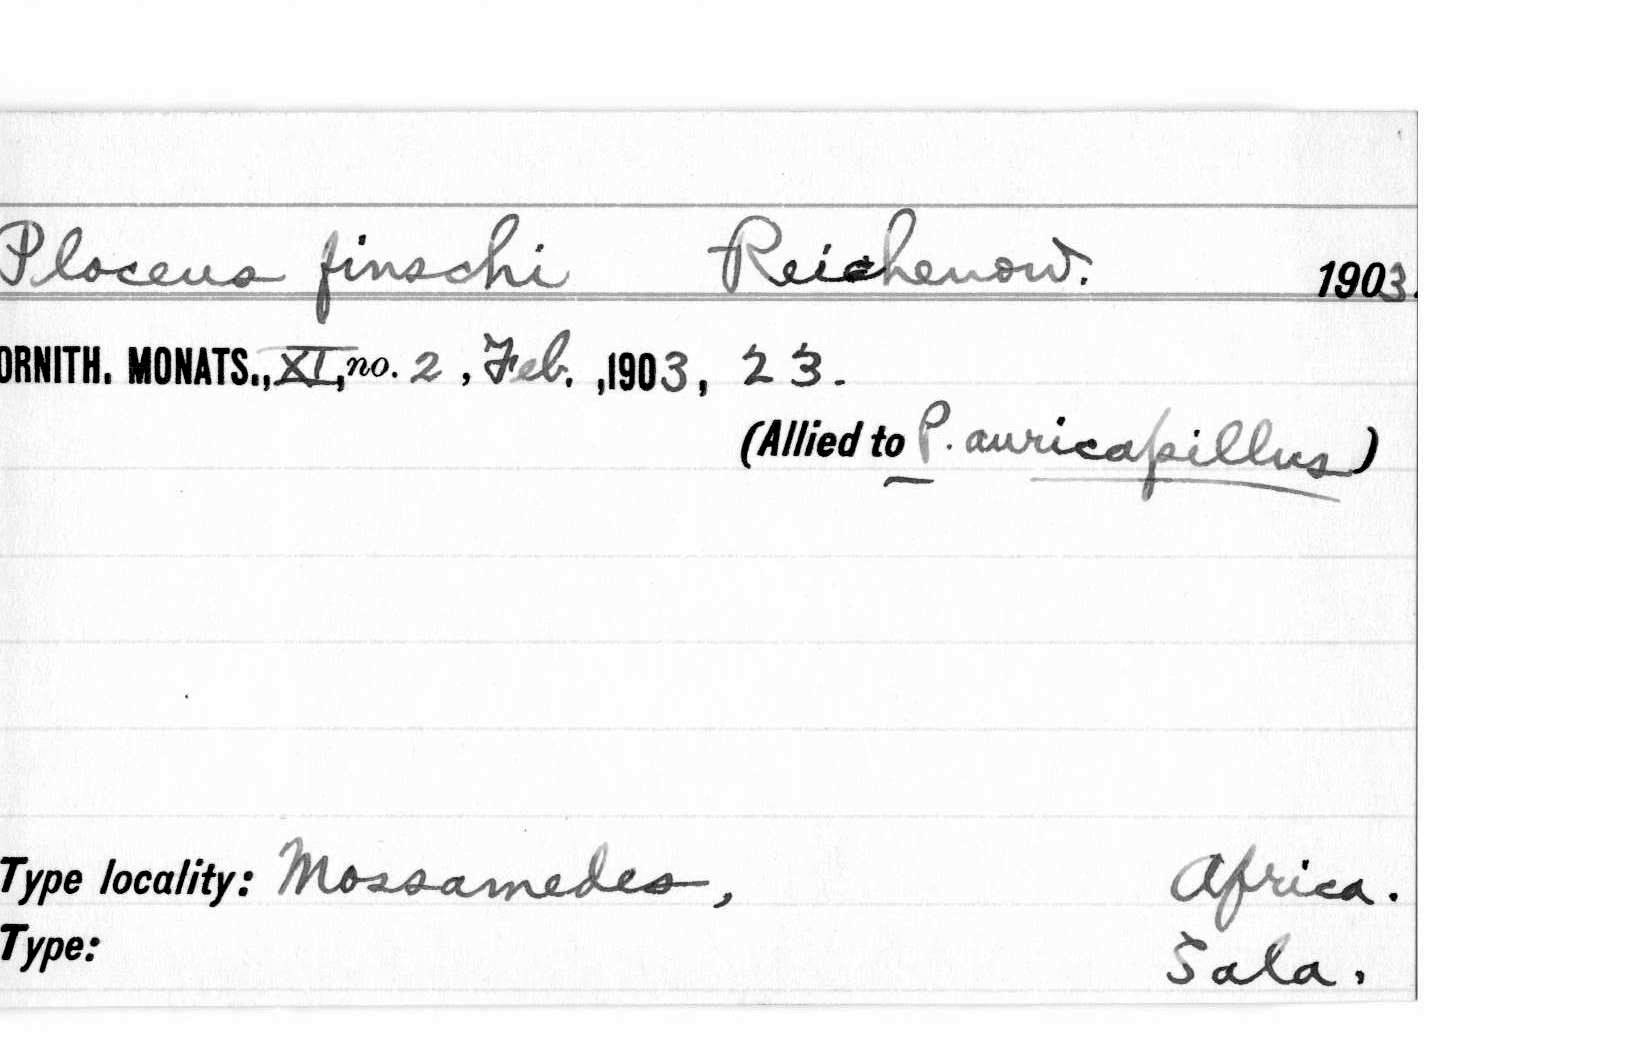 Ploceus finschi Reichenow. 1903.
ORNITH. MONATS., XI, no. 2, Feb., 1903, 23.
(Allied to P. auricapillus)
Type locality: Mossamedes, Africa.
Type: Sala.